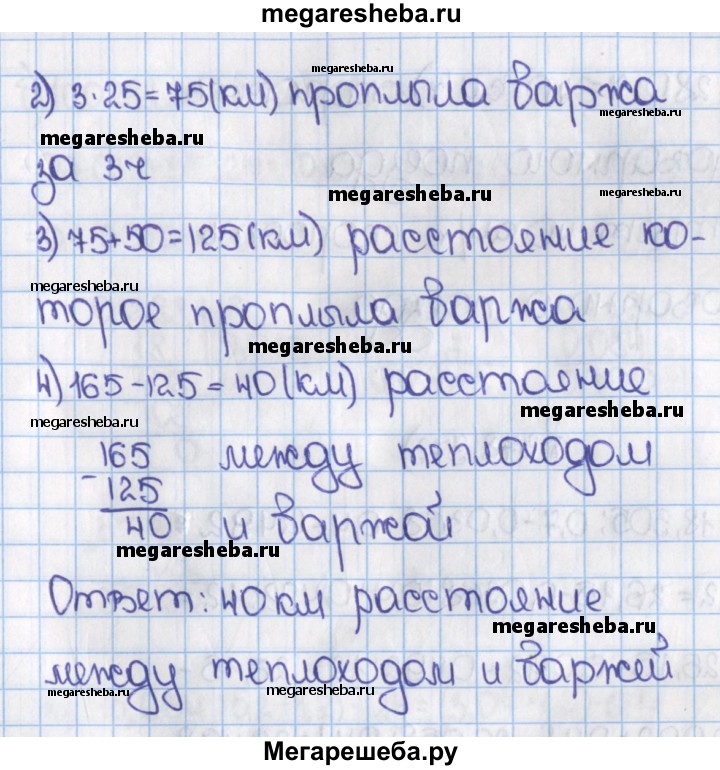 megaresheba.ru
megaresheba.ru
2) 3·25=75(км) проплыла баржа
megaresheba.ru
megaresheba.ru
за 3ч
megaresheba.ru
megaresheba.ru
3) 75+50=125(км) расстояние ко-
megaresheba.ru
торое проплыла баржа
megaresheba.ru
4) 165-125=40(км) расстояние
megaresheba.ru
megaresheba.ru
165 между теплоходом
- 125
40 и баржой
megaresheba.ru
Ответ: 40 км расстояние
megaresheba.ru
между теплоходом и баржей
megaresheba.ru
megaresheba.ru
Мегарешеба.ру